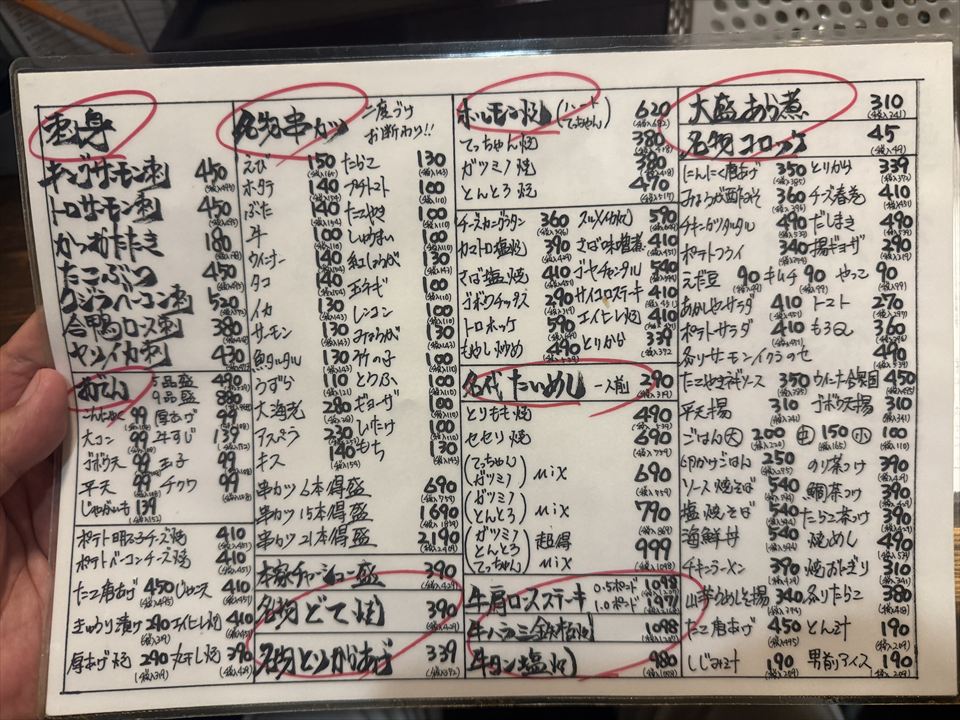 刺身
キングサーモン刺 450 (税込495)
トロサーモン刺 450 (税込495)
かつおたたき 180
たこぶつ 450
クジラベーコン刺 520
合鴨ロース刺 380
ヤリイカ刺 430
おでん 5品盛 490
9品盛 880
こんにゃく 99 厚あげ 99
大コン 99 牛すじ 139
ゴボウ天 99 玉子 99
平天 99 チクワ 99
じゃがいも 139
ポテト明太チーズ焼 410 (税込451)
ポテトベーコンチーズ焼 410 (税込451)
たこ唐あげ 450 じゃこ天 410
きゅうり漬け 290 エイヒレ焼 410
厚あげ焼 290 丸干し焼 390
名物串かつ 二度づけお断わり!!
えび 150 たらこ 130
ホタテ 140 プチトマト 100
ぶた 140 たこやき 100
牛 100 しゅうまい 100
ウィンナー 140 紅しょうが 130
タコ 140 玉ネギ 100
イカ 130 レンコン 100
サーモン 130 みょうが 130
魚タルタル 130 竹の子 130
うずら 110 とうふ 100
大海老 280 ギョーザ 130
アスパラ 230 しいたけ 100
キス 140 もち 130
串カツ 6本得盛 690 (税込759)
串カツ 15本得盛 1690
串カツ 21本得盛 2190 (税込2409)
本家チャーシュー盛 390 (税込429)
名物どて焼 390 (税込429)
名物とりからあげ 339 (税込372)
ホルモン焼 (ハート てっちゃん) 620 (税込682)
てっちゃん焼 380
ガツミノ焼 380 (税込418)
とんとろ焼 470 (税込517)
チーズカニグラタン 360 スルメイカ焼 590
カマトロ塩焼 390 さば味噌煮 410
さば塩焼 410 ゴーヤチャンプル 540
ゴボウチップス 290 サイコロステーキ 410
トロホッケ 590 エイヒレ焼 410
もやし炒め 490 とりから 339
名代たいめし 一人前 290 (税込319)
とりもも焼 490
セセリ焼 690
(てっちゃん ガツミノ) mix 690 (税込759)
(ガツミノ とんとろ) mix 790 (税込869)
(ガツミノ とんとろ てっちゃん) 超得 mix 999 (税込1098)
牛肩ロースステーキ 0.5ポンド 1098
1.0ポンド 1971
牛ハラミ鉄板焼 1098
牛タン塩焼 980 (税込1078)
大盛あら煮 310 (税込341)
名物コロッケ 45 (税込49)
にんにく唐あげ 350 とりから 339
みょうが酉みそ 360 チーズ春巻 410
チキンカツタルタル 490 だしまき 490
ポテトフライ 340 揚ギョーザ 290
えだ豆 90 キムチ 90 やっこ 90
あかしやサラダ 410 トマト 270
ポテトサラダ 410 もろQ 360
炙りサーモンイクラのせ 490
たこやきネギソース 350 ウィンナー合衆国 450
平天揚 310 ゴボウ天揚 310
ごはん 大 200 中 150 小 100
卵かけごはん 250 のり茶づけ 390
ソース焼そば 540 鯛茶づけ 390
塩焼そば 540 たらこ茶づけ 390
海鮮丼 540 焼めし 490
チキンラーメン 390 焼おにぎり 310
山芋うめしそ揚 340 炙りたらこ 380
たこ唐あげ 450 とん汁 190
しじみ汁 190 男前アイス 190